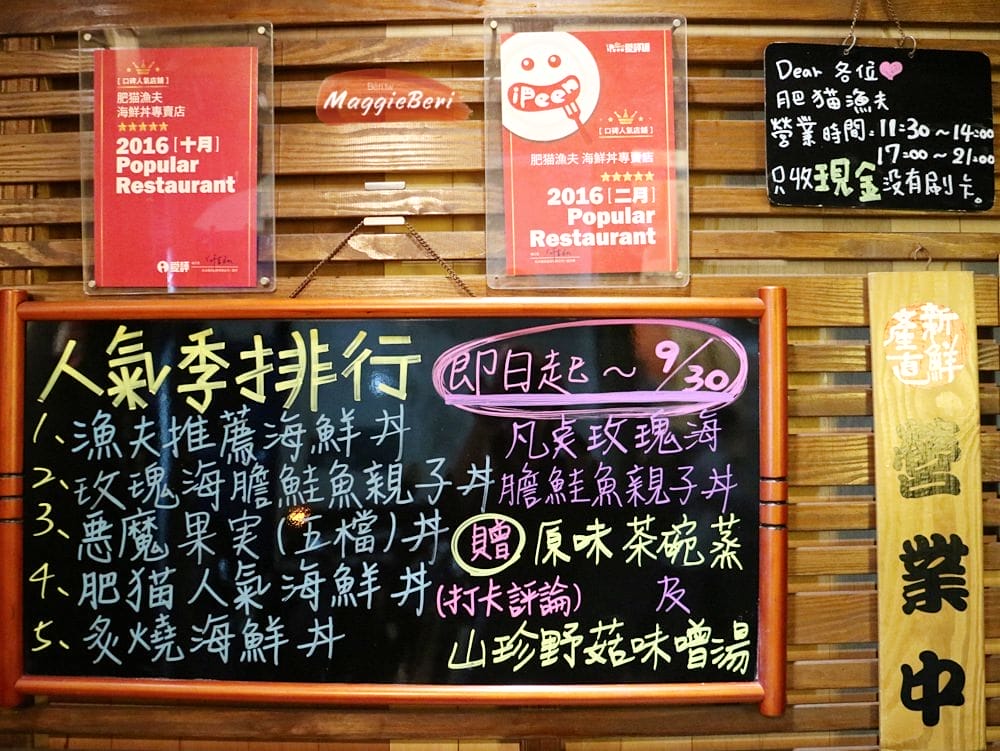 [口碑人氣店舖]
肥猫漁夫
海鮮丼專賣店
2016 [十月]
Popular
Restaurant
愛評
MaggieBeri
愛評網
iPeen
[口碑人氣店舖]
肥猫漁夫 海鮮丼專賣店
2016 [二月]
Popular
Restaurant
Dear 各位
肥猫漁夫
營業時間:11:30~14:00
17:00~21:00
只收現金没有刷卡。
人氣季排行
1、漁夫推薦海鮮丼
2、玫瑰海膽鮭魚親子丼
3、悪魔果実(五檔)丼
4、肥猫人氣海鮮丼
5、炙燒海鮮丼
即日起~9/30
凡桌玫瑰海
膽鮭魚親子丼
贈 原味茶碗蒸
(打卡評論) 及
山珍野菇味噌湯
新鮮
產直
營業中